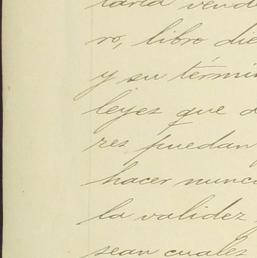 taria vend
ro, libro die
y su térmi
leyes que d
res puedan
hacer nunca
la validez
sean cuales